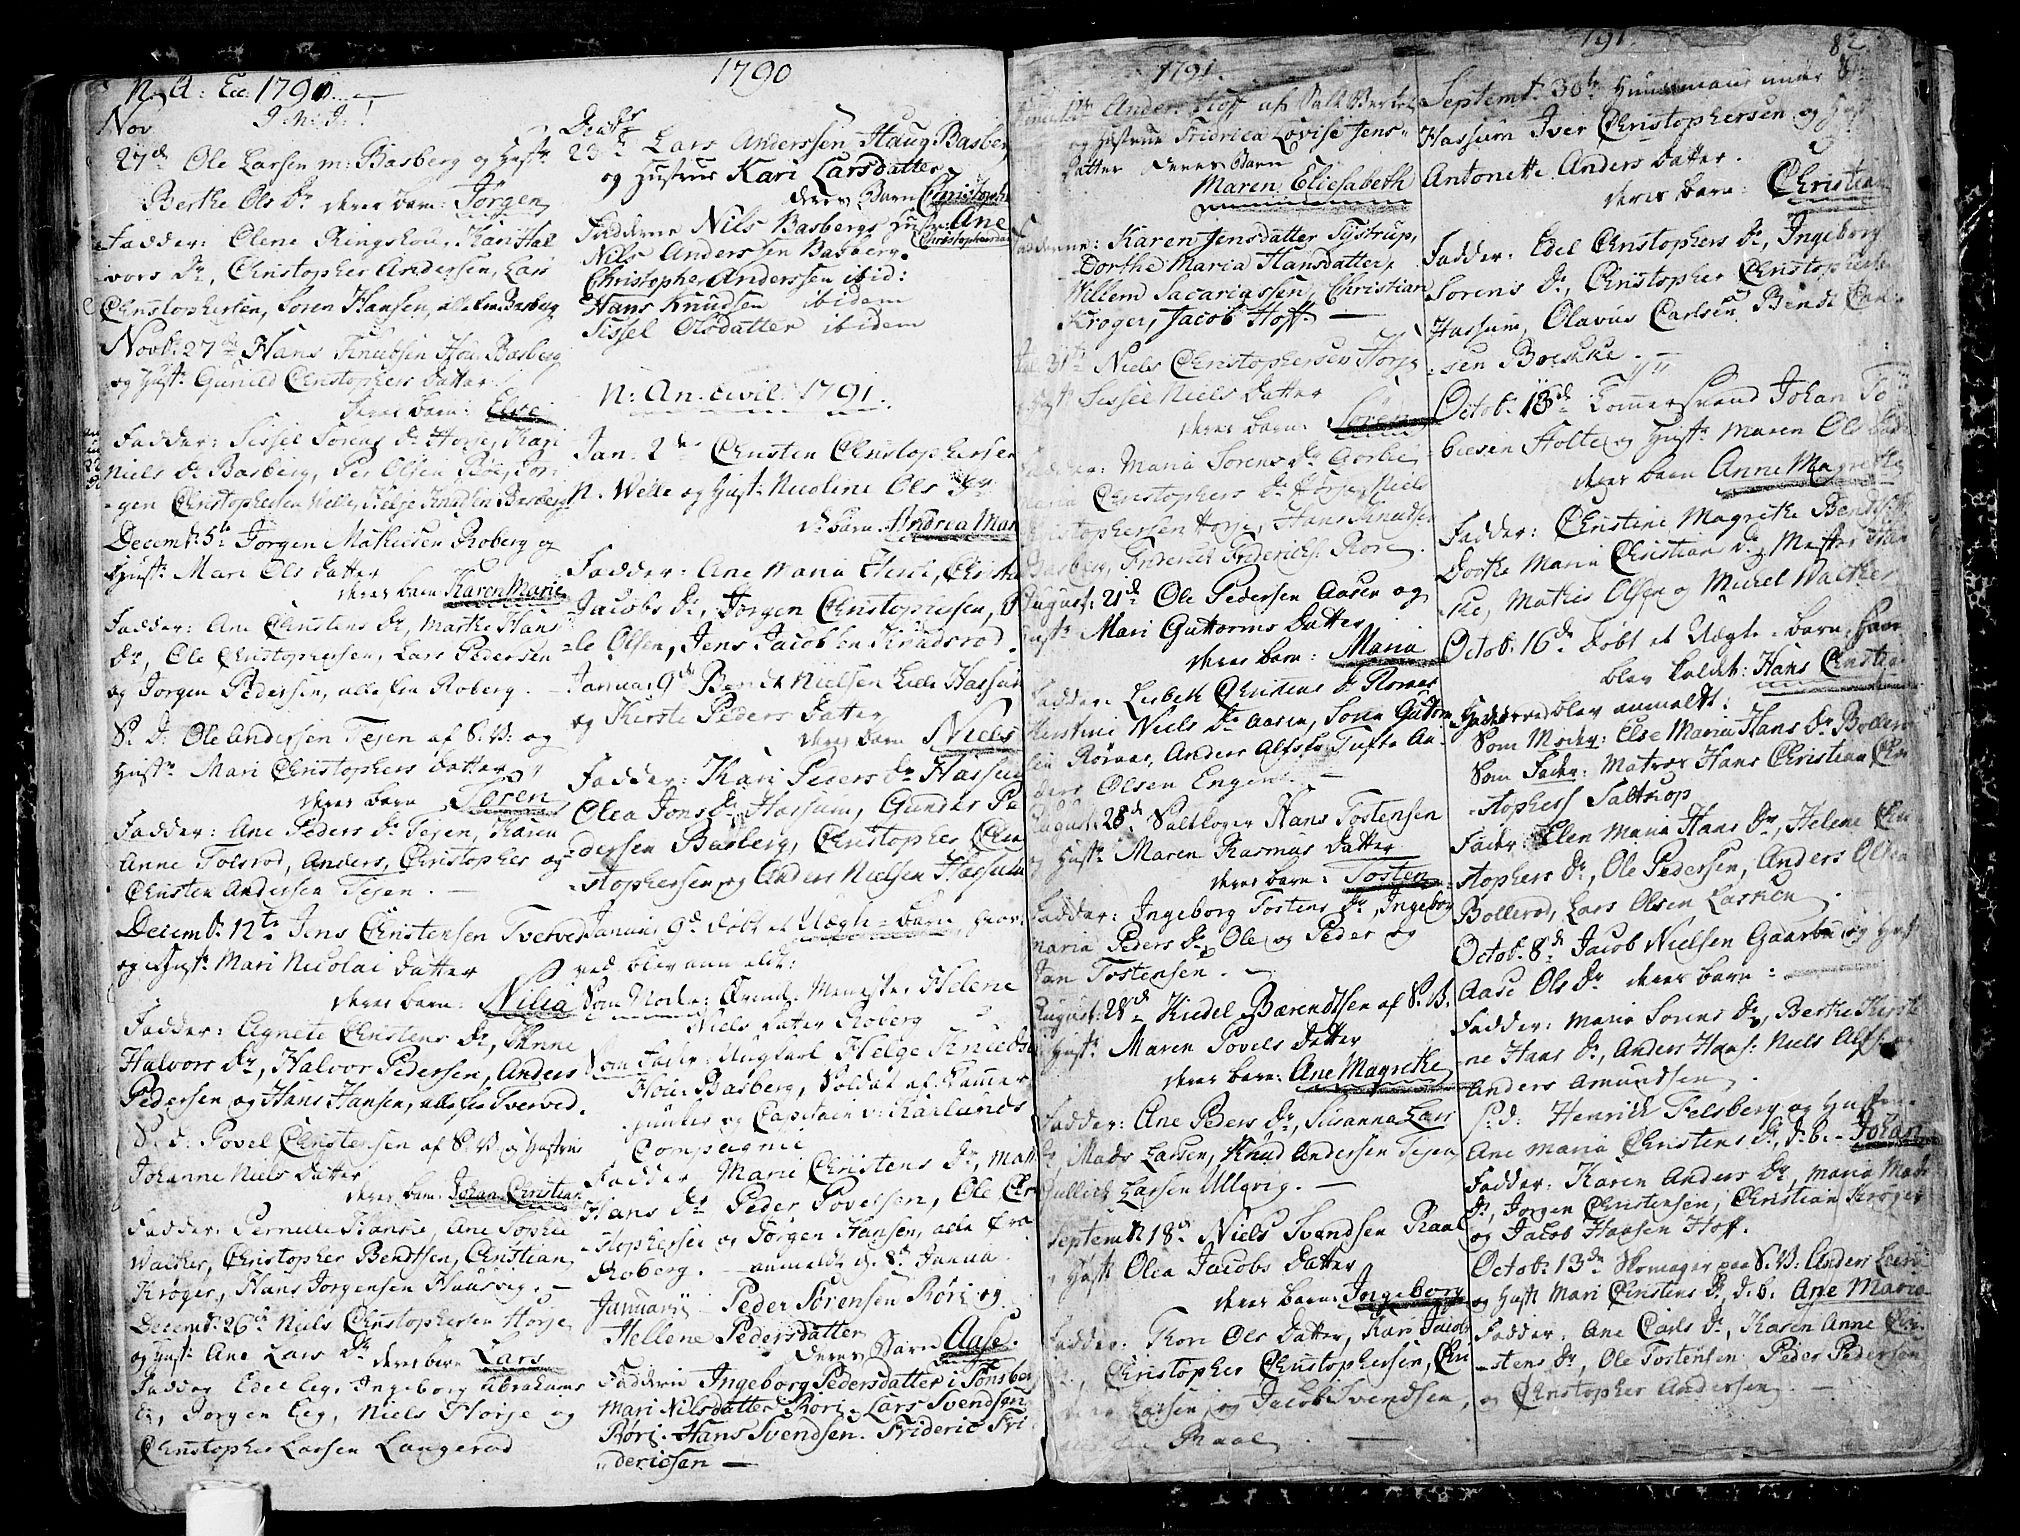 N. A: Ec: 1790
J. N. J.!
Nov
27de Ole Larsen m: Basberg og Hustr
Berthe Ols Dr deres barn: Jörgen
Fadder: Olene Ringshou, Kari Hal
vors Dr, Christopher Andersen, Lars
Christophersen, Soren Hansen, alle fra Basberg
Novb: 27de Hans Knudsen Hou Basberg
og Hustr Gunild Christophers Datter
deres barn: Else
Fadder: Sissel Sorens Dr Horje, Kari
Niels Dr Basberg, Per Olsen Röe, Jör-
gen Christophersen Welle, Helje Knudsen Basberg
Decemb: 5te Jorgen Mathiesen Roberg og
Hustr Mari Ols Datter
deres barn Karen Marie
Fadder: Ane Christens Dr, Marthe Hans
Dr, Ole Christophersen, Lars Pedersen
og Jorgen Pedersen, alle fra Roberg.
S. D: Ole Andersen Tejen af S.V: og
Hustr Mari Christophers Datter
deres barn Sören
Fadder: Ane Peders Dr Tejen, Karen
Anne Tolsrod, Anders, Christopher og
Christen Andersen Tejen.
Decemb: 12te Jens Christensen Tvetved
og Hustr Mari Nicolai Datter
deres barn: Nilia
Fadder: Agnete Christens Dr, Anne
Halvors Dr, Halvor Pedersen, Anders
Pedersen og Hans Hansen, alle fra Tvetved.
S. d: Povel Christensen af S.V og Hustru
Johanne Niels Datter
deres barn: Johan Christian
Fadder: Pernille Hansd, Ane Sophie
Walker, Christopher Bendtsen, Christian
Kröger, Hans Jorgensen Haaseg.
Decemb: 26de Niels Christophersen Horje
og Hustr Ane Lars Dr deres barn Lars
Fadder Edel Eeg, Ingeborg Abrahams
Dr, Jorgen Eeg, Niels Horje og
Christopher Larsen Langerod
1790
Decbr
23de Lars Anderssen Haug Basberg
og Hustrue Kari Larsdatter
deres Barn Christopher
Fadderne Nils Basbergs Hustr Ane
Christophersdatter
Nils Anderssen Basberg.
Christopher Anderssen ibid:
Hans Knudsen ibidem
Sissel Olsdatter ibidem
N: An. civil: 1791.
Jan. 2de Christen Christophersen
N. Welle og Hustr: Nicoline Ols Dr
D. Barn: Andrea Mar
Fadder: Ane Maria, Christi
Jacobs Dr, Jorgen Christophersen, O-
le Olsen, Jens Jacobsen Knudsrod.
Januar 9de Bendt Nielsen Lille Hassum
og Kirste Peders Datter
deres barn Niels
Fadder: Kari Peders Dr Hassum
Olea Jons Dr Hassum, Gunder Pe
dersen Basberg, Christopher Chri
stophersen, og Anders Nielsen Hassum
Januar 9de dobt et Uægte-barn, hvor
ved blev anmeldt:
Som Moder: Qvinde Menneske Helene
Niels Dater Roberg
Som Fader: Ungkarl Helge Knudsen
Hou Basberg, Soldat af
og Capitain v: Karlunds
Compagnie
Fadder Mari Christens Dr, Mari
Hans Dr Peder Povelsen, Ole Chri
stophersen og Jörgen Hansen, alle fra
Roberg. anmeldt d. 8de Janua
Januarii Peder Sörensen Röri og
Hellene Pedersdatter
deres Barn Aase
Faddere Ingeborg Pedersdatter i Tonsberg
Mari Nilsdatter Röri. Lars Svendsen
Röri. Hans Svendsen. Frideric Fri
dericsen —
1791.
12te Anders Hoff af Salt Verket
og Hustrue Fridrica Lovise Jens-
datter deres Barn
Maren Eliesabeth
Fadderne: Karen Jensdatter Tystrup,
Dorthe Maria Hansdatter,
Willem Sacariassen, Christian
Kroger, Jacob Hoff. —
31te Niels Christophersen Horje
Hustr Sessel Niels Datter
deres barn: Sören
Fadder: Maria Sorens Dr Aorbu
Maria Christophers Dr Horje, Niels
Christophersen Horje, Hans Knudsen
Basberg, Friderich Friderichs Rore.
August: 21de Ole Pedersen Aasen og
Hustr Mari Guttorms Datter
deres barn: Maria
Fadder: Lisbeth Christens Dr Romes
Kirstine Niels Dr Aasen, Soren Guttorm
sen Römes, Anders Alfsen Tufte An-
ders Olsen Engene. —
August: 28de Saltkoger Hans Tostensen
og Hustr Maren Rasmus Datter
deres barn: Tosten
Fadder: Ingeborg Tostens Dr, Ingebor
Maria Peders Dr, Ole og Peder og
Jan Tostensen.
August: 28de Kiedel Bærendtsen af S.V.
Hustr Maren Povels Datter
deres barn: Ane Magrethe
Fadder: Ane Bers Dr, Susanna Lars
Dr Mads Larsen, Knud Andersen Tejen
Gullich Larsen Ullevig. —
Septemb: 18de Niels Svendsen Raal
og Hustr Olea Jacobs Datter
deres barn: Ingeborg
Fadder: Thore Ols Datter, Kari Jacobs
Dr, Christopher Christophersen, Chri
Larsen og Jacob Svendsen,
Raal. —
191.
82
Septemb: 30te Huusmand under St:
Hassum Iver Christophersen og Hustr
Antonette Anders Datter.
deres barn: Christian
Fadder: Edel Christophers Dr, Ingeborg
Sorens Dr, Christopher Christophersen
Hassum, Olavus Carlsen Bendt Chri-
sen Boeskke.
Octob: 18de Tomersvend Johan To
biesen Holte og Hustr Maren Ols Datter
deres barn Anne Magrethe
Fadder: Christine Magrethe Bendtsd
Dorthe Maria Christian Dr, Mester
Mathis Olsen og Michel Walker
Octob: 16de dobt et Uægte-barn, som
blev kaldet: Hans Christian
Hvorved blev anmeldt:
Som Moder: Else Maria Hans Dr Bollero
Som Fader: Matros Hans Christian Chri
stophers Saltrop
Fadder Elen Maria Hans Dr, Helene Chri
stophers Dr, Ole Pedersen, Anders Olsen
Bollerod, Lars Olsen Larsien
Octob: 8de Jacob Nielsen Gaarbu og Hustr
Aase Ols Dr deres barn:
Fadder: Maria Sorens Dr, Berthe Kirsti
ne Hans Dr, Anders Hans: Niels Alfs
Anders Amundsen
S: d: Henrich Felsberg og Hustru
Ane Maria Christens Dr, D. b. Johan
Fadder: Karen Anders Dr, Maria Mads
Dr, Jorgen Christensen, Christian Kröger
og Jacob Hansen Hoff.
Octob: 13de Skomager paa S.V: Anders Larsen
og Hustr Mari Christens Dr, D. b. Ane Maria
Fadder: Ane Carls Dr, Karen Anne Chri
stens Dr, Ole Tostensen Peder Pedersen
og Christopher Andersen. —